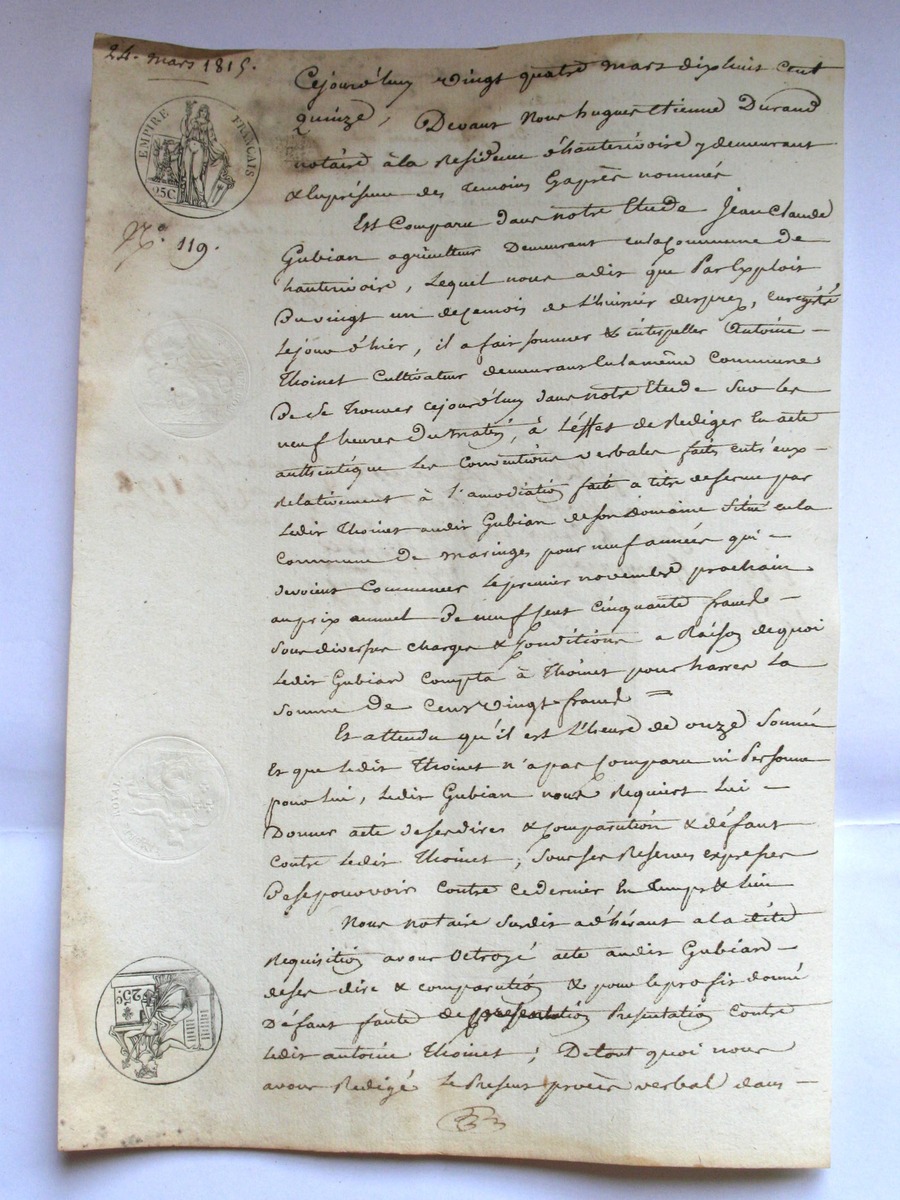 24. mars 1815.
EMPIRE FRANÇAIS
25C
N.º 119.
Cejourd'huy vingt quatre mars dix huit cent
quinze, Devant Nous hugues Etienne Durand
notaire à la Residence d'hauterivoire y demeurant
& en présence des Temoins Cy après nommés
Est Comparu dans notre Etude Jean Claude
Gubian agriculteur Demeurant en la Commune de
hauterivoire, Lequel nous a dit que Par Exploit
Du vingt un de ce mois de L'huissier desprez, enregistré
Le jour d'hier, il a fait sommer & interpeller Antoine
Thoinet Cultivateur demeurant en la même Commune
De se Trouver cejourd'huy dans notre Etude Sur les
neuf heures Du matin, à L'effet de Rediger En acte
authentique Les Conventions verbales faites entr'eux
Relativement à L'amodiation faite a titre de ferme par
Ledit Thoinet audit Gubian de son Domaine Situé en la
Commune De maringes pour neuf années qui
devoient Commencer Le premier novembre prochain
au prix annuel De neuf Cent Cinquante francs
Sous diverses charges & Conditions a Raison de quoi
Ledit Gubian Compta à Thoinet pour harres La
Somme De Cent vingt francs =
Et attendu qu'il est L'heure de onze Sonnée
Et que Ledit Thoinet n'a pas Comparu ni Personne
pour Lui, Ledit Gubian nous Requiert Lui
Donner acte de ses dires & Comparution & défaut
Contre Ledit Thoinet, Sous ses Réserves expresses
De se pourvoir Contre ce dernier En Temps & Lieu
Nous notaire Susdit adhérant a la dite
Requisition avons Octroyé acte audit Gubian
de ses dire & comparution & pour le profit donné
Défaut faute de Presentation Contre
Ledit antoine Thoinet; De tout quoi nous
avons Redigé Le Present procès verbal dans
25.C